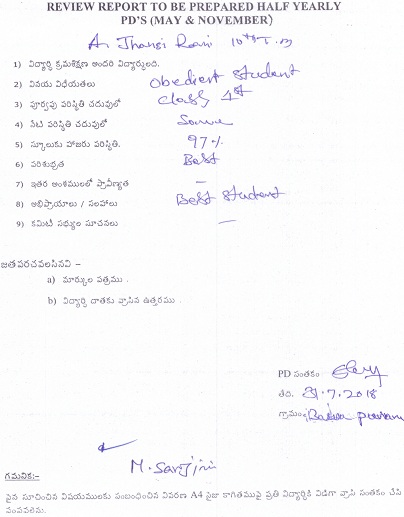 REVIEW REPORT TO BE PREPARED HALF YEARLY
PD'S (MAY & NOVEMBER)
A. Jhansi Rani 10th T.M
1) విద్యార్థి క్రమశిక్షణ అందరి విద్యార్థులది.
2) వినయ విధేయతలు Obedient Student
3) పూర్వపు పరిస్థితి చదువులో Class 1st
4) నేటి పరిస్థితి చదువులో Same
5) స్కూలుకు హాజరు పరిస్థితి. 97%
6) పరిశుభ్రత Best
7) ఇతర అంశములలో ప్రావీణ్యత –
8) అభిప్రాయాలు / సలహాలు Best Student
9) కమిటీ సభ్యుల సూచనలు –
జతపరచవలసినవి –
a) మార్కుల పత్రము .
b) విద్యార్థి దాతకు వ్రాసిన ఉత్తరము .
PD సంతకం
తేది. 31.7.2018
గ్రామం:
M. Sarojini
గమనిక:-
పైన సూచించిన విషయములకు సంబంధించిన వివరణ A4 సైజు కాగితముపై ప్రతి విద్యార్థికి విడిగా వ్రాసి సంతకం చేసి
పంపవలెను.